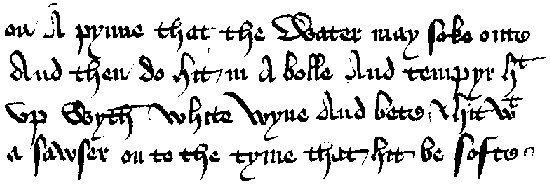 on A pynne that the Water may soke onto
And then do hit in A bolle And tempyr hᵗ
vp Wyth white Wyne And bete hit wᵗ
a sawser on to the tyme that hit be softe